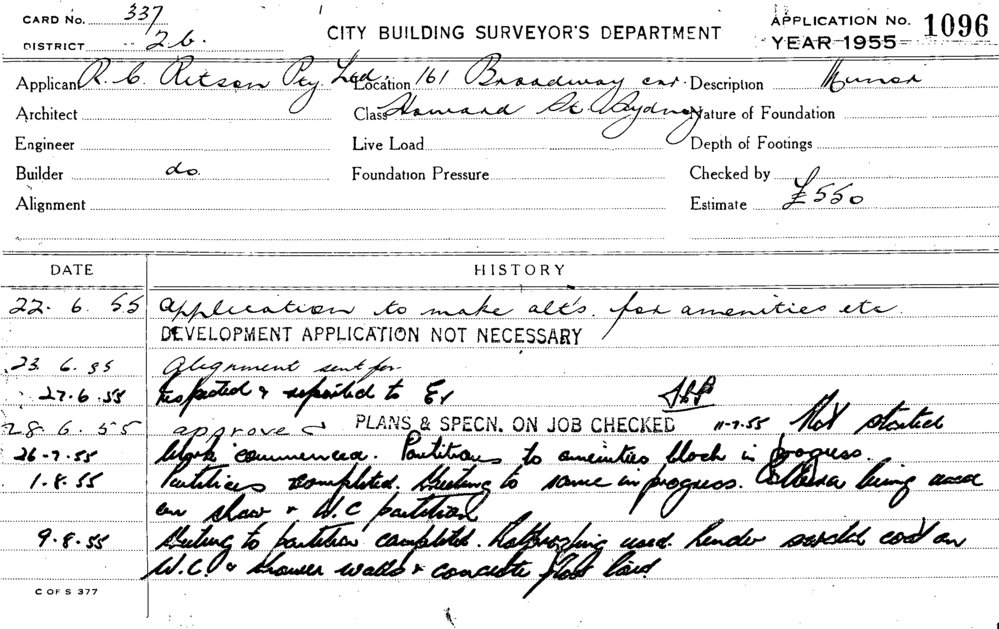 CARD No. 337
DISTRICT 2b.
CITY BUILDING SURVEYOR'S DEPARTMENT
APPLICATION No. 1096
YEAR 1955
Applicant R. C. Ritson Pty. Ltd. Location 161 Broadway cnr. Description Minor
Architect Class Howard St. Sydney Nature of Foundation
Engineer Live Load Depth of Footings
Builder do. Foundation Pressure Checked by
Alignment Estimate £550
DATE HISTORY
22. 6. 55 application to make alt's. for amenities etc.
DEVELOPMENT APPLICATION NOT NECESSARY
23. 6. 55 Alignment sent for
27.6.55 Inspected & reported to
28. 6. 55 approved PLANS & SPECN. ON JOB CHECKED 11-7.55 Not started
26-7.55 Work commenced. Partitions to amenities block in progress.
1.8.55 Partitions completed. Sheeting to same in progress. being used
on & W.C partition
9.8.55 Sheeting to partition completed. used. Render coat on
W.C. & shower walls & concrete floor laid.
C OF S 377